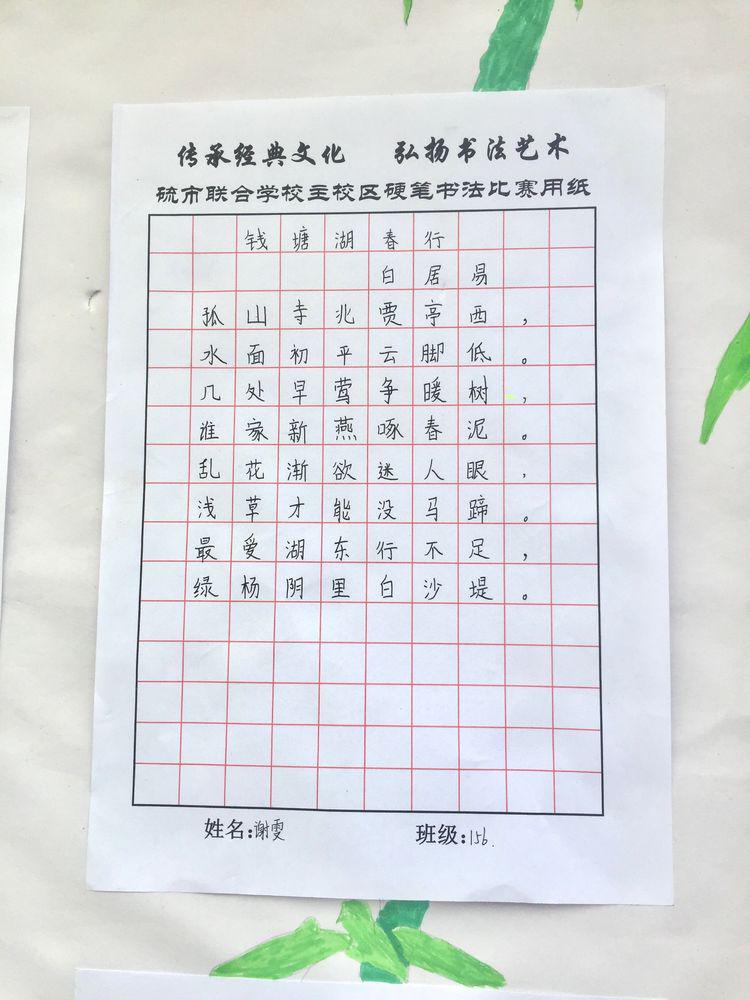 传承经典文化 弘扬书法艺术
硫市联合学校主校区硬笔书法比赛用纸
钱塘湖春行
白居易
孤山寺北贾亭西，
水面初平云脚低。
几处早莺争暖树，
谁家新燕啄春泥。
乱花渐欲迷人眼，
浅草才能没马蹄。
最爱湖东行不足，
绿杨阴里白沙堤。
姓名:谢雯 班级:156.